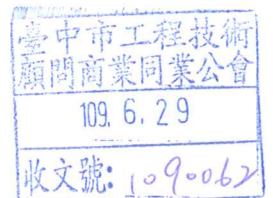 臺中市工程技術
顧問商業同業公會
109. 6. 29
收文號: 1090062